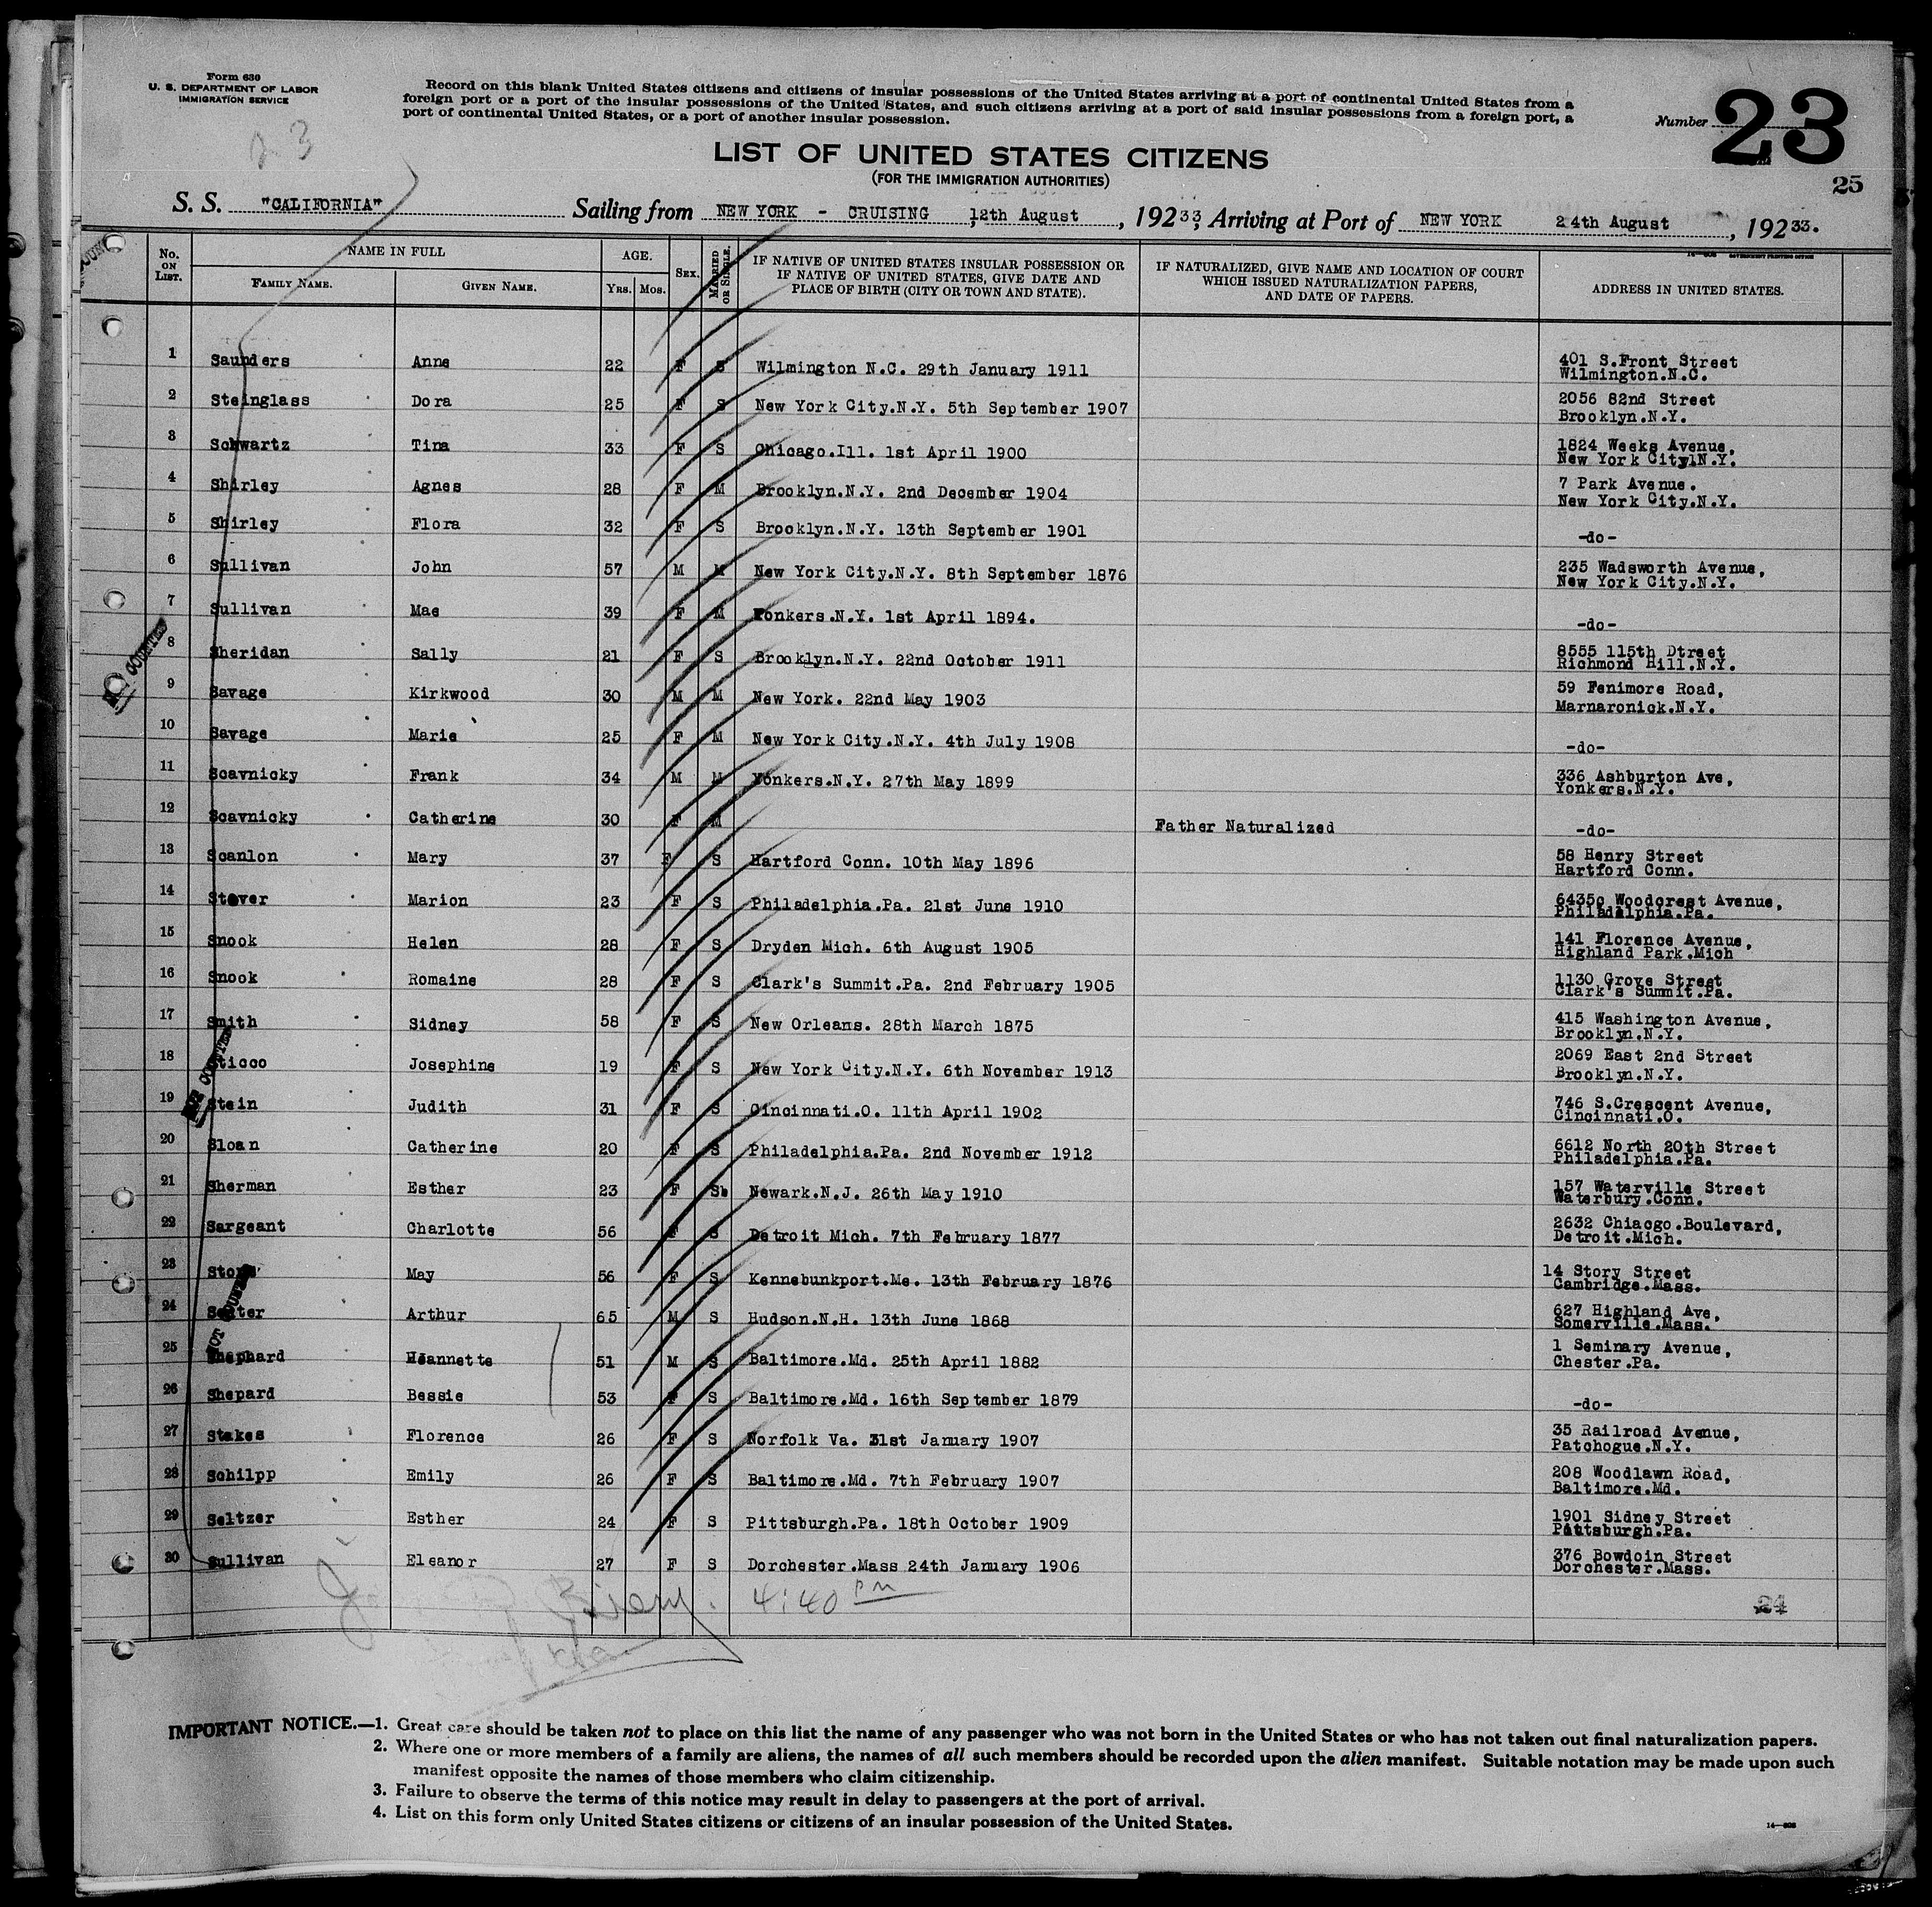 Form 630
U. S. DEPARTMENT OF LABOR
IMMIGRATION SERVICE
23
Record on this blank United States citizens and citizens of insular possessions of the United States arriving at a port of continental United States from a
foreign port or a port of the insular possessions of the United States, and such citizens arriving at a port of said insular possessions from a foreign port, a
port of continental United States, or a port of another insular possession.
Number 23
LIST OF UNITED STATES CITIZENS
(FOR THE IMMIGRATION AUTHORITIES)
25
S. S. "CALIFORNIA" Sailing from NEW YORK - CRUISING 12th August, 19233, Arriving at Port of NEW YORK 24th August, 19233.
No. ON LIST. NAME IN FULL FAMILY NAME. GIVEN NAME. AGE. Yrs. Mos. SEX. MARRIED OR SINGLE. IF NATIVE OF UNITED STATES INSULAR POSSESSION OR IF NATIVE OF UNITED STATES, GIVE DATE AND PLACE OF BIRTH (CITY OR TOWN AND STATE). IF NATURALIZED, GIVE NAME AND LOCATION OF COURT WHICH ISSUED NATURALIZATION PAPERS, AND DATE OF PAPERS. ADDRESS IN UNITED STATES.
1 Saunders Anne 22 F S Wilmington N.C. 29th January 1911 401 S.Front Street
Wilmington.N.C.
2 Steinglass Dora 25 F S New York City.N.Y. 5th September 1907 2056 82nd Street
Brooklyn.N.Y.
3 Schwartz Tina 33 F S Chicago.Ill. 1st April 1900 1824 Weeks Avenue,
New York City1N.Y.
4 Shirley Agnes 28 F M Brooklyn.N.Y. 2nd December 1904 7 Park Avenue.
New York City.N.Y.
5 Shirley Flora 32 F S Brooklyn.N.Y. 13th September 1901 -do-
6 Sullivan John 57 M M New York City.N.Y. 8th September 1876 235 Wadsworth Avenue,
New York City.N.Y.
7 Sullivan Mae 39 F M Yonkers.N.Y. 1st April 1894. -do-
8 Sheridan Sally 21 F S Brooklyn.N.Y. 22nd October 1911 8555 115th Dtreet
Richmond Hill.N.Y.
9 Savage Kirkwood 30 M M New York. 22nd May 1903 59 Fenimore Road,
Marnaronick.N.Y.
10 Savage Marie 25 F M New York City.N.Y. 4th July 1908 -do-
11 Scavnicky Frank 34 M M Yonkers.N.Y. 27th May 1899 336 Ashburton Ave,
Yonkers.N.Y.
12 Scavnicky Catherine 30 F M Father Naturalized -do-
13 Scanlon Mary 37 F S Hartford Conn. 10th May 1896 58 Henry Street
Hartford Conn.
14 Stover Marion 23 F S Philadelphia.Pa. 21st June 1910 6435c Woodcrest Avenue,
Philadelphia.Pa.
15 Snook Helen 28 F S Dryden Mich. 6th August 1905 141 Florence Avenue,
Highland Park.Mich
16 Snook Romaine 28 F S Clark's Summit.Pa. 2nd February 1905 1130 Grove Street
Clark's Summit.Pa.
17 Smith Sidney 58 F S New Orleans. 28th March 1875 415 Washington Avenue,
Brooklyn.N.Y.
18 Sticco Josephine 19 F S New York City.N.Y. 6th November 1913 2069 East 2nd Street
Brooklyn.N.Y.
19 Stein Judith 31 F S Cincinnati.O. 11th April 1902 746 S.Crescent Avenue,
Cincinnati.O.
20 Sloan Catherine 20 F S Philadelphia.Pa. 2nd November 1912 6612 North 20th Street
Philadelphia.Pa.
21 Sherman Esther 23 F S Newark.N.J. 26th May 1910 157 Waterville Street
Waterbury.Conn.
22 Sargeant Charlotte 56 F S Detroit Mich. 7th February 1877 2632 Chiacgo.Boulevard,
Detroit.Mich.
23 May 56 F S Kennebunkport.Me. 13th February 1876 14 Story Street
Cambridge.Mass.
24 Arthur 65 M S Hudson.N.H. 13th June 1868 627 Highland Ave,
Somerville.Mass.
25 Shephard Jeannette 51 M S Baltimore.Md. 25th April 1882 1 Seminary Avenue,
Chester.Pa.
26 Shepard Bessie 53 F S Baltimore.Md. 16th September 1879 -do-
27 Stakes Florence 26 F S Norfolk Va. 31st January 1907 35 Railroad Avenue,
Patchogue.N.Y.
28 Schilpp Emily 26 F S Baltimore.Md. 7th February 1907 208 Woodlawn Road,
Baltimore.Md.
29 Seltzer Esther 24 F S Pittsburgh.Pa. 18th October 1909 1901 Sidney Street
Pittsburgh.Pa.
30 Sullivan Eleanor 27 F S Dorchester.Mass 24th January 1906 376 Bowdoin Street
Dorchester.Mass.
4:40 PM
24
IMPORTANT NOTICE.—1. Great care should be taken not to place on this list the name of any passenger who was not born in the United States or who has not taken out final naturalization papers.
2. Where one or more members of a family are aliens, the names of all such members should be recorded upon the alien manifest. Suitable notation may be made upon such
manifest opposite the names of those members who claim citizenship.
3. Failure to observe the terms of this notice may result in delay to passengers at the port of arrival.
4. List on this form only United States citizens or citizens of an insular possession of the United States.